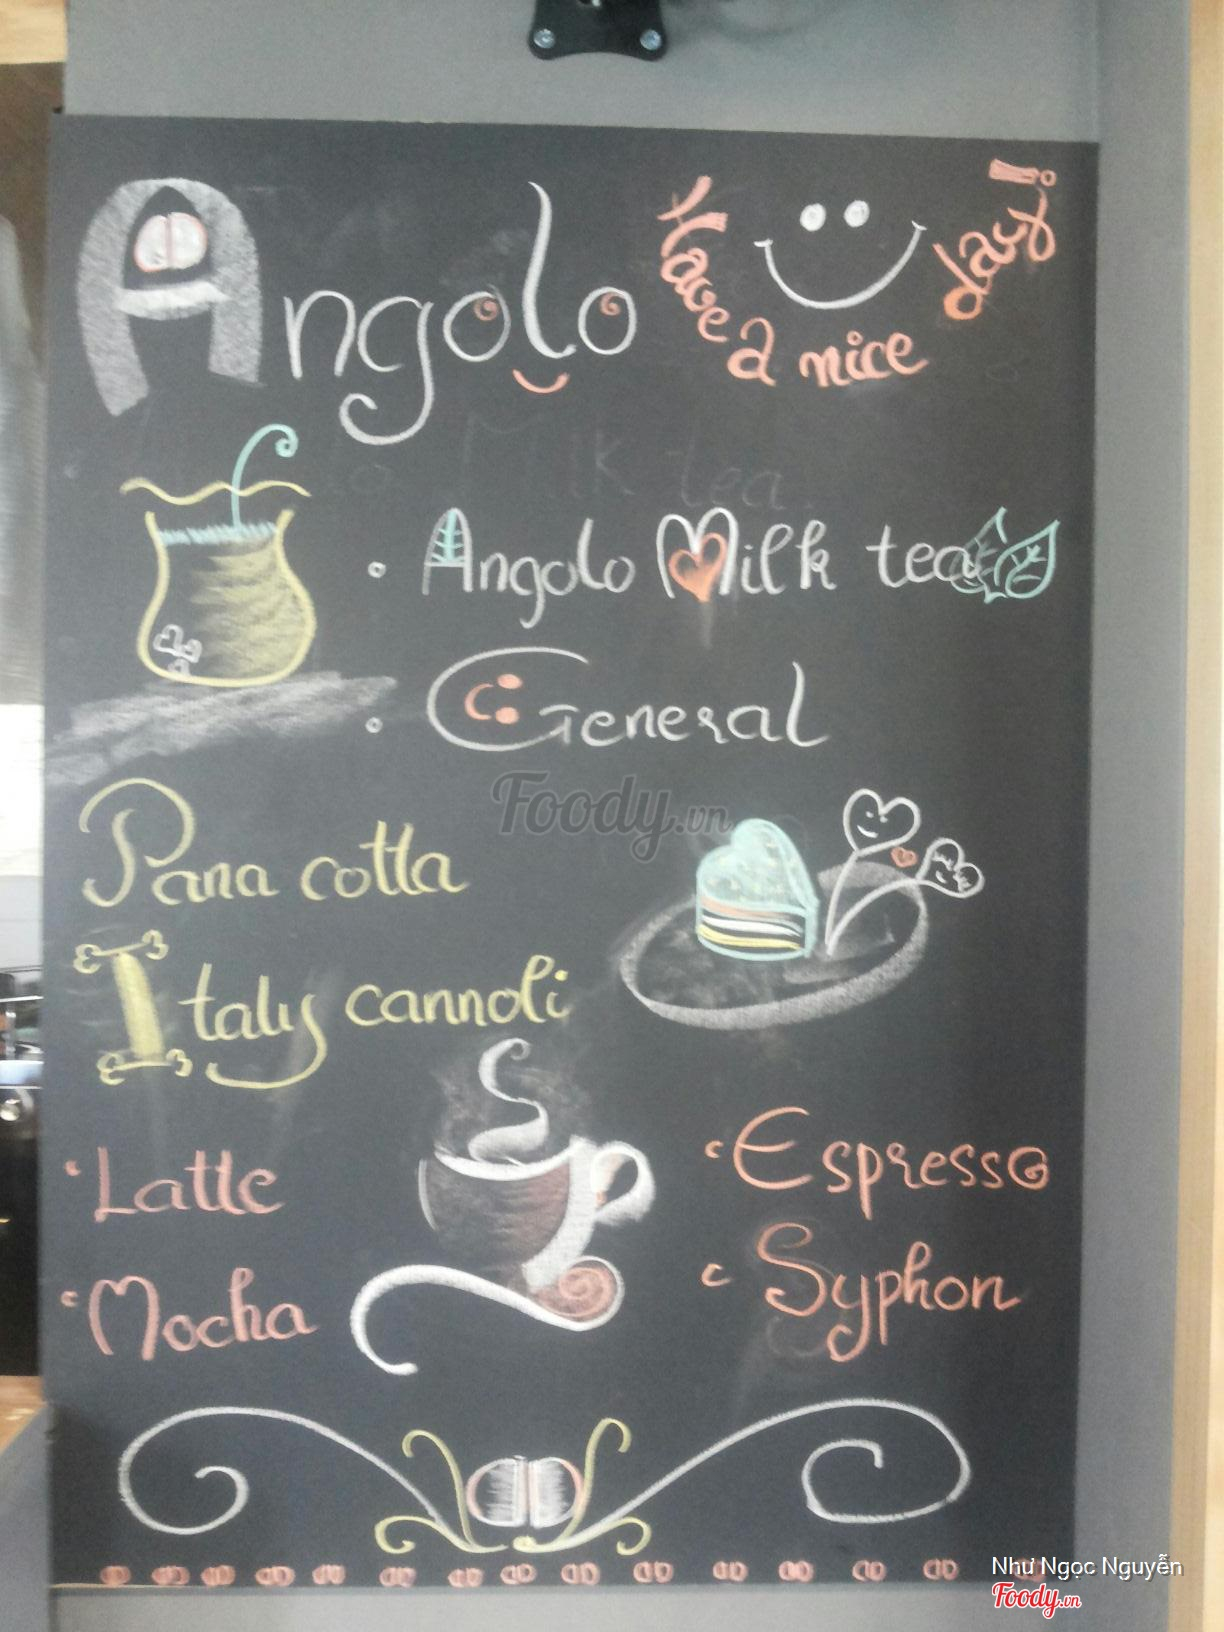 Angolo
Have a nice day!
Milk tea
• Angolo Milk tea
• General
Foody.vn
Pana cotta
Italy cannoli
• Latte
• Espresso
• Mocha
• Syphon
Như Ngọc Nguyễn
Foody.vn